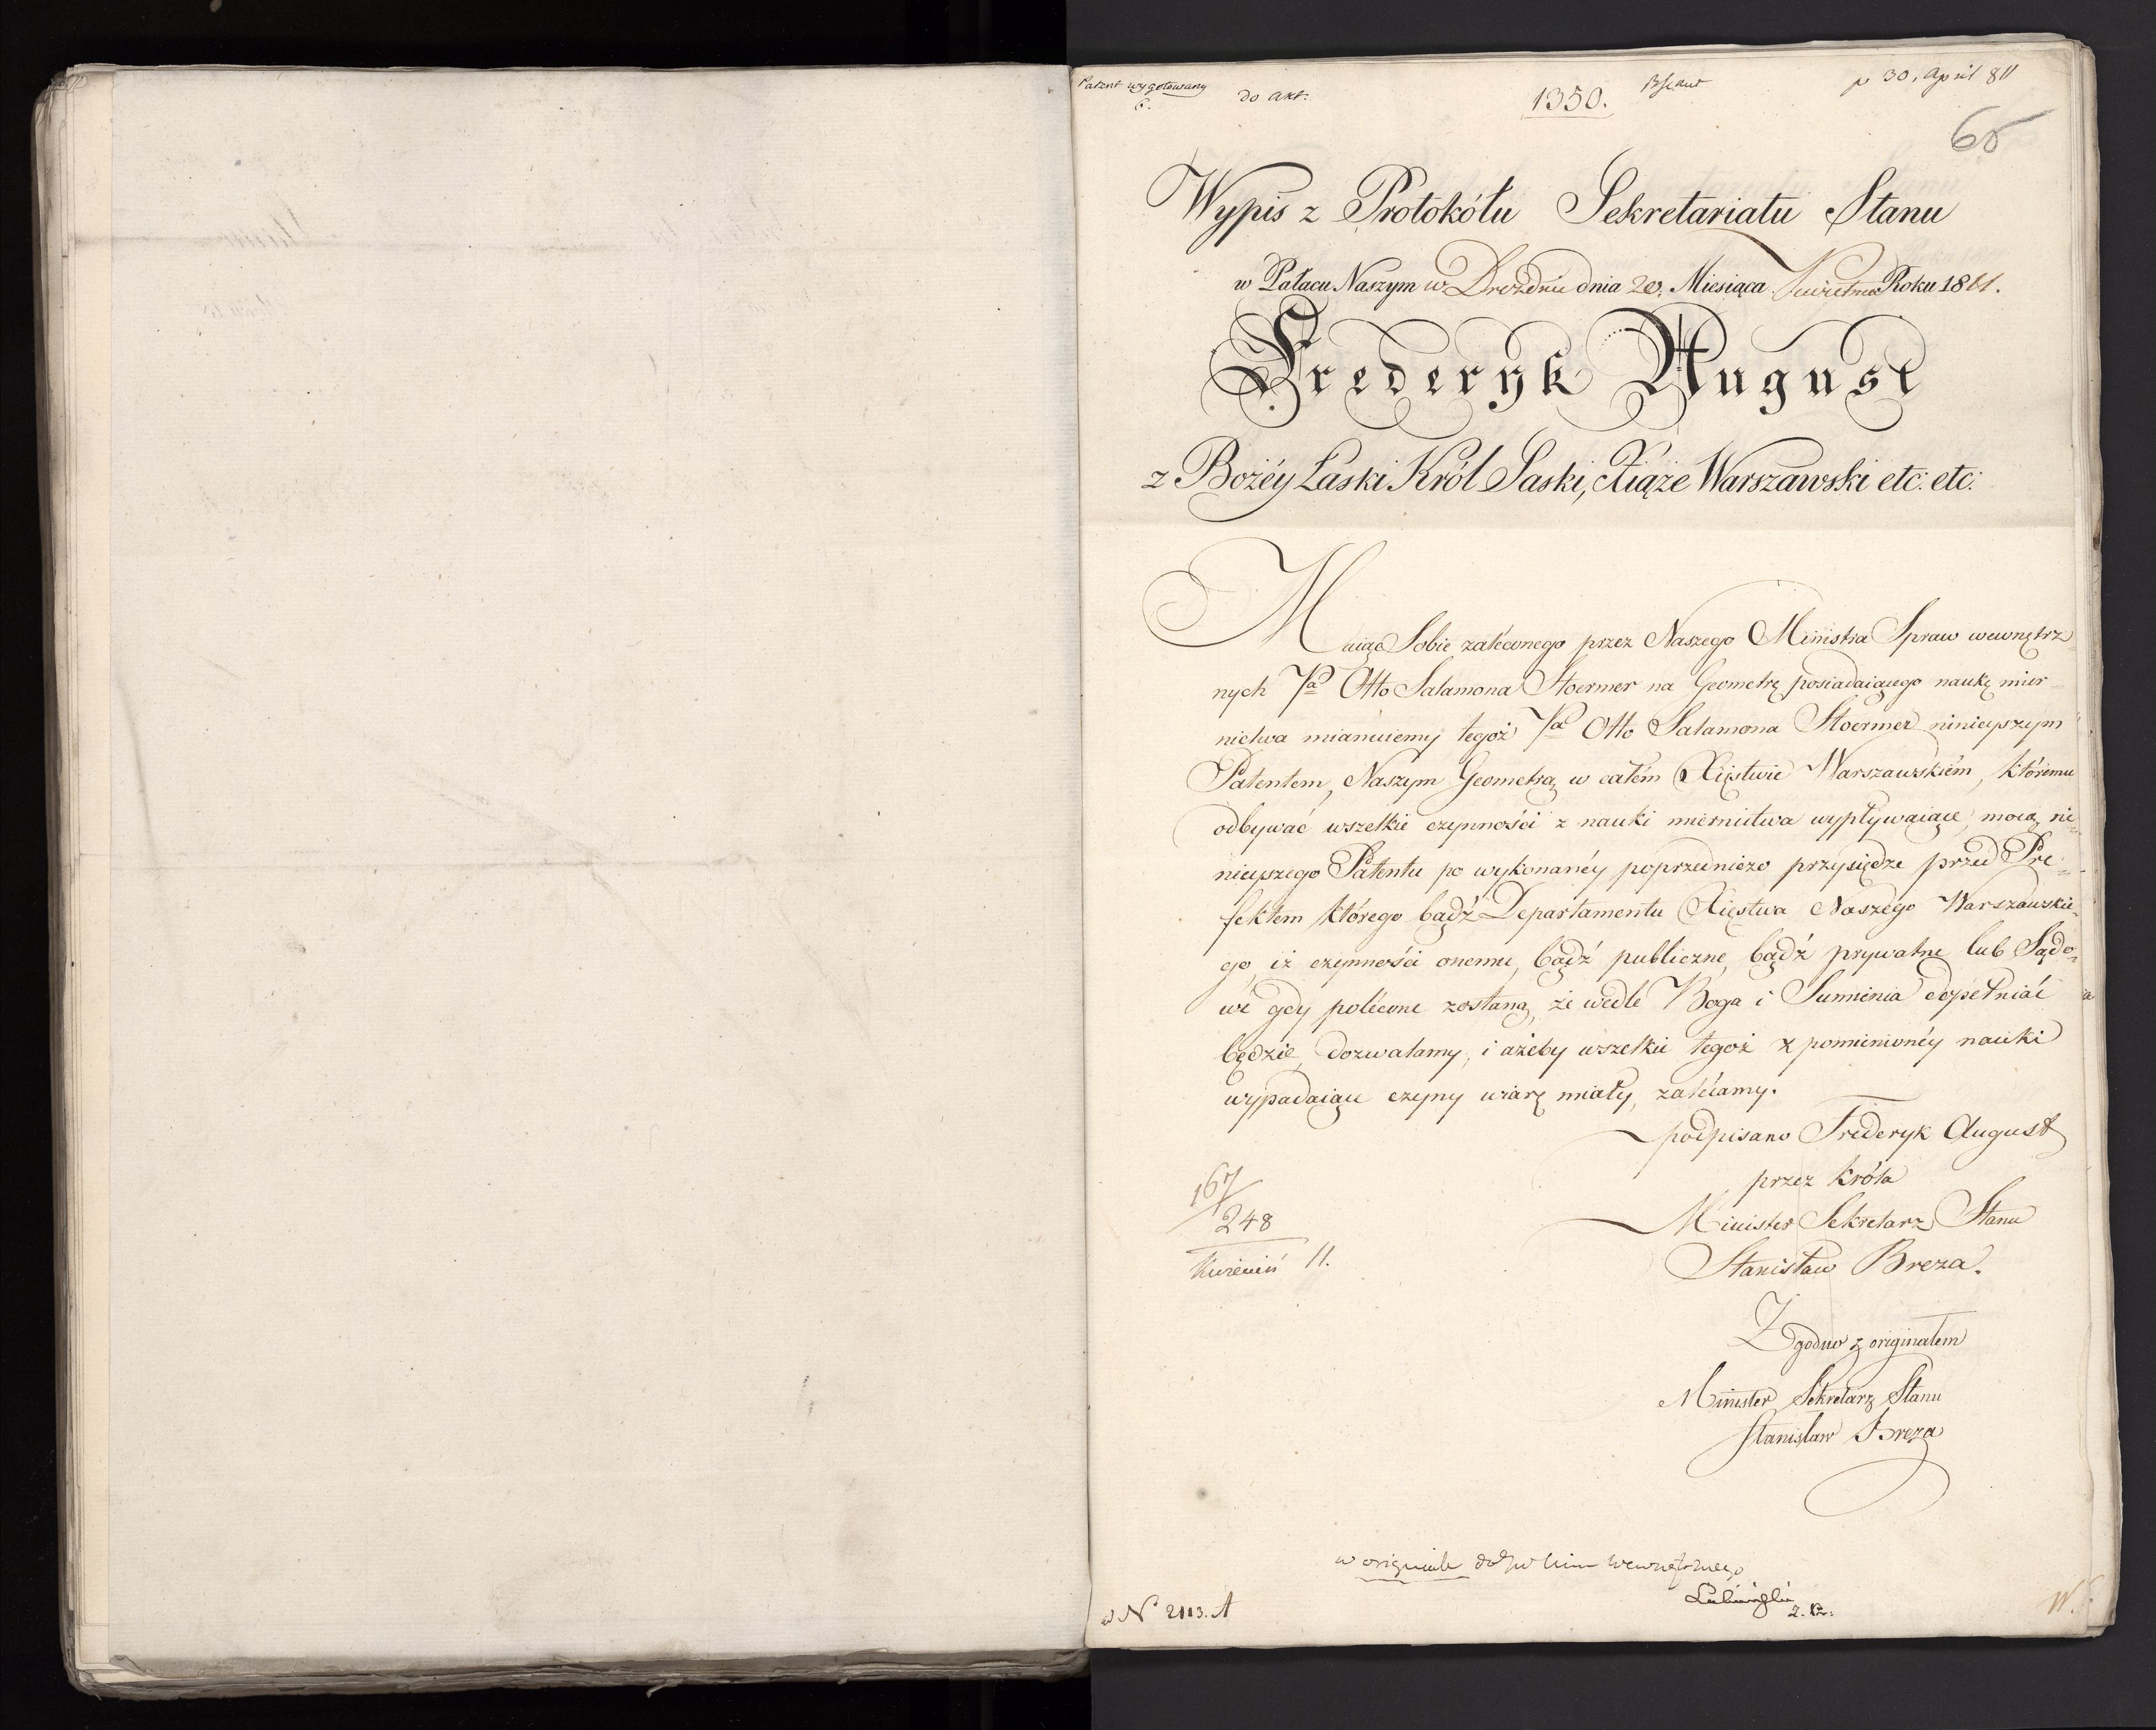 Patent wygotowany
6.
do akt:
1350.
p 30, April 811
65
Wypis z Protokółu Sekretariatu Stanu
w Pałacu Naszym w Dreźdnie dnia 20. Miesiąca Kwietnia Roku 1811.
Frederyk August
z Bożéy Łaski Król Saski, Xiąże Warszawski etc: etc:
Maiąc Sobie zaleconego przez Naszego Ministra Spraw wewnętrz-
nych Pa Otto Salamona Stoermer na Geometrę posiadaiącego naukę mier-
nictwa mianuiemy tegoż Pa Otto Salamona Stoermer ninieyszym
Patentem, Naszym Geometrą w całém Xięstwie Warszawskiém, któremu
odbywać wszelkie czynności z nauki miernictwa wypływaiące, mocą ni-
nieyszego Patentu po wykonanéy poprzedniczo przysiędze przed Pre-
fektem którego bądź Departamentu Xięstwa Naszego Warszawskie-
go, iż czynności onemu, bądź publiczne, bądź prywatne lub Sądo-
we gdy polécone zostaną, że wedle Boga i Sumnienia dopełniać
będzie, dozwalamy, i ażeby wszelkie tegoż z pomienionéy nauki
wypadaiące czyny wiarę miały, zalécamy.
podpisano Frederyk August
przez Króla
Minister Sekretarz Stanu
Stanisław Breza.
167/248
Kwiecień 11.
Zgodno z originałem
Minister Sekretarz Stanu
Stanisław Breza
w originale
wewnętrznego
N 2113. A
W.